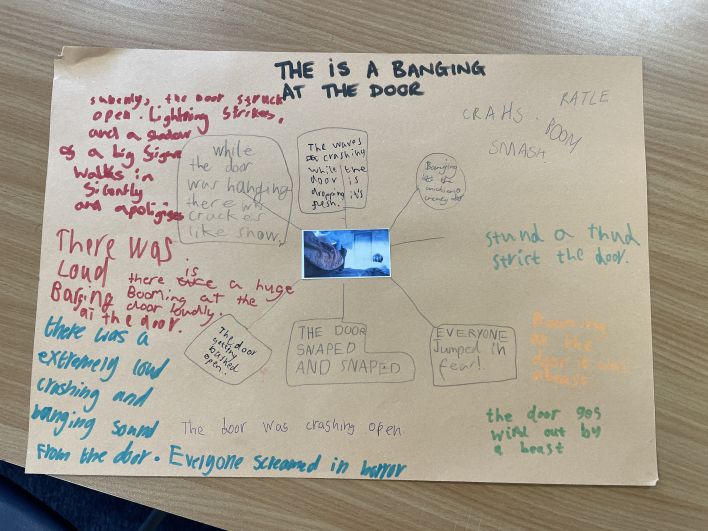 THE IS A BANGING
AT THE DOOR
subenly, the door struck
open. Lightning strikes,
and a shadow
of a big figure
walks in
silently
and apoligises
while
the door
was hanging
there was
crackes
like snow.
The waves
crashing
while the
door is
dropping it's
flesh.
Banging
CRAHS.
RATLE
BOOM
SMASH
stund a thud
strict the door.
There was
Loud
Baging
at the door.
there is a huge
Booming at the
door loudly.
The door
getting
bashed
open!
THE DOOR
SNAPED
AND SNAPED
EVERYONE
Jumped in
fear!
at the
door
the door gos
wild out by
a beast
there was a
extremely loud
crashing and
banging sound
from the door. Everyone screamed in horror
The door was crashing open